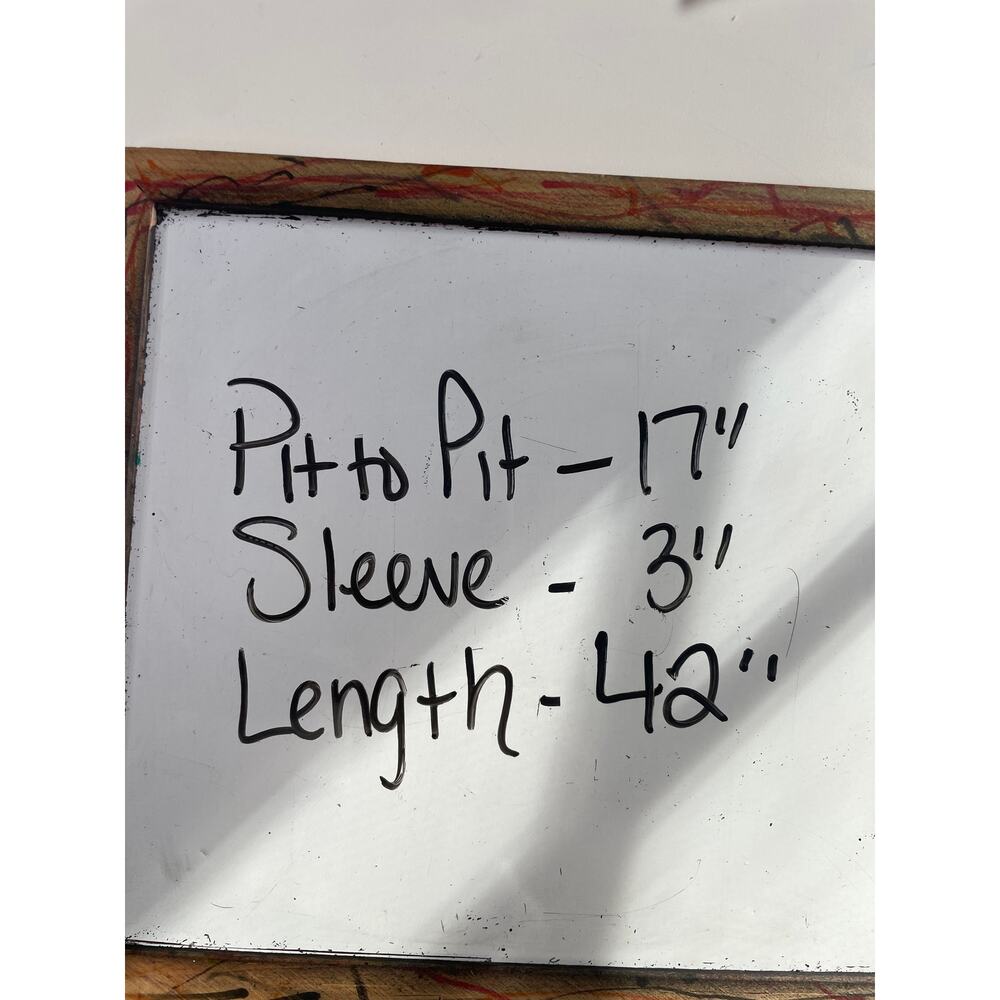 Pit to Pit - 17"
Sleeve - 3"
Length - 42"